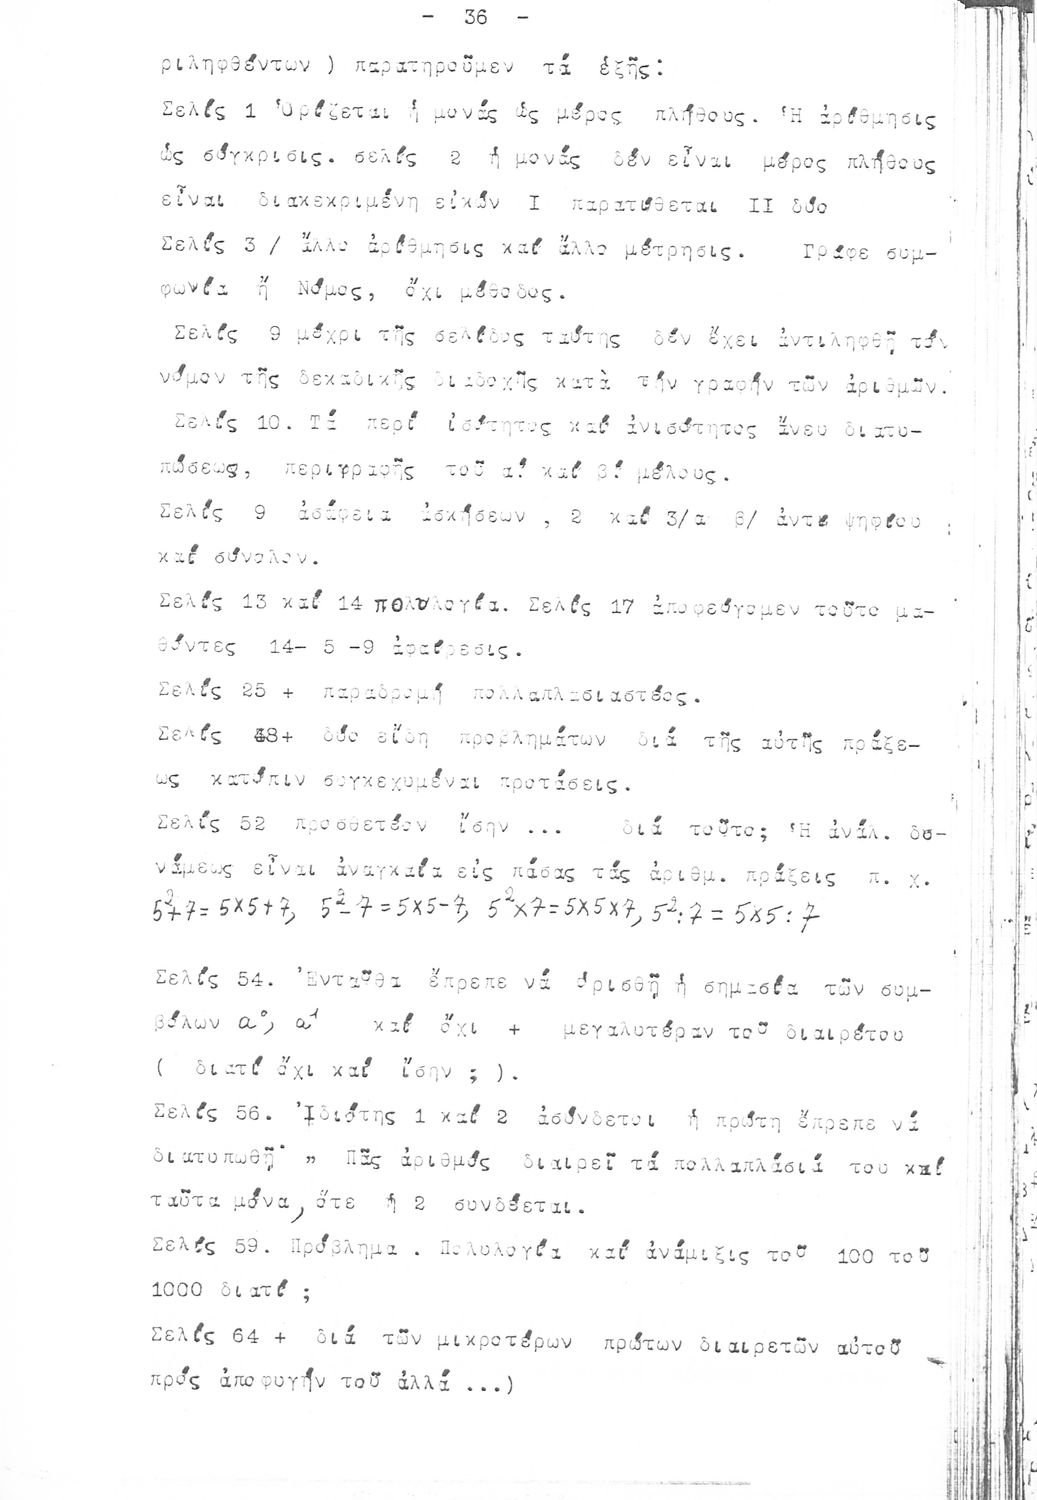 - 36 -
ριληφθέντων ) παρατηροῦμεν τά ἑξῆς:
Σελίς 1 Ὁρίζεται ἡ μονάς ὡς μέρος πλήθους. Ἡ ἀρίθμησις
ὡς σύγκρισις. σελίς 2 ἡ μονάς δέν εἶναι μέρος πλήθους
εἶναι διακεκριμένη εἰκών Ι παρατίθεται ΙΙ δύο
Σελίς 3 / ἄλλο ἀρίθμησις καί ἄλλο μέτρησις. Γράφε συμ-
φωνία ἤ Νόμος, ὄχι μέθοδος.
Σελίς 9 μέχρι τῆς σελίδος ταύτης δέν ἔχει ἀντιληφθῆ τόν
νόμον τῆς δεκαδικῆς διαδοχῆς κατὰ τήν γραφήν τῶν ἀριθμῶν.
Σελίς 10. Τά περί ἰσότητος καί ἀνισότητος ἄνευ διατυ-
πώσεως, περιγραφῆς τοῦ α! καί β! μέλους.
Σελίς 9 ἀσάφεια ἀσκήσεων , 2 καί 3/α β/ ἀντι ψηφίου ;
καί σύνολον.
Σελίς 13 καί 14 πολυλογία. Σελίς 17 ἀποφεύγομεν τοῦτο μα-
θόντες 14- 5 -9 ἀφαίρεσις.
Σελίς 25 + παραδρομή πολλαπλασιαστέος.
Σελίς 48+ δύο εἴδη προβλημάτων διά τῆς αὐτῆς πράξε-
ως κατόπιν συγκεχυμέναι προτάσεις.
Σελίς 52 προσθετέον ἴσην ... διά τοῦτο; Ἡ ἀνάλ. δυ-
νάμεως εἶναι ἀναγκαία εἰς πάσας τάς ἀριθμ. πράξεις π. χ.
5²+7=5×5+7, 5²-7=5×5-7, 5²×7=5×5×7, 5²:7=5×5:7
Σελίς 54. Ἐνταῦθα ἔπρεπε νά ὁρισθῆ ἡ σημασία τῶν συμ-
βόλων α⁰, α¹ καί ὄχι + μεγαλυτέραν τοῦ διαιρέτου
( διατί ὄχι καί ἴσην ; ).
Σελίς 56. Ἰδιότης 1 καί 2 ἀσύνδετοι ἡ πρώτη ἔπρεπε νά
διατυπωθῆ· " Πᾶς ἀριθμός διαιρεῖ τά πολλαπλάσιά του καί
ταῦτα μόνα, ὅτε ἡ 2 συνδέεται.
Σελίς 59. Πρόβλημα . Πολυλογία καί ἀνάμιξις τοῦ 100 τοῦ
1000 διατί ;
Σελίς 64 + διά τῶν μικροτέρων πρώτων διαιρετῶν αὐτοῦ
πρός ἀποφυγήν τοῦ ἀλλά ...)